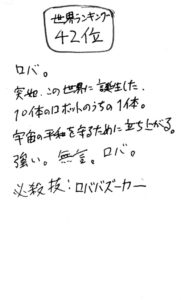 世界ランキング
42位
ロバ。
突如、この世界に誕生した
10体のロボットのうちの1体。
宇宙の平和を守るために立ち上がる。
強い。無言。ロバ。
必殺技：ロバズーカー